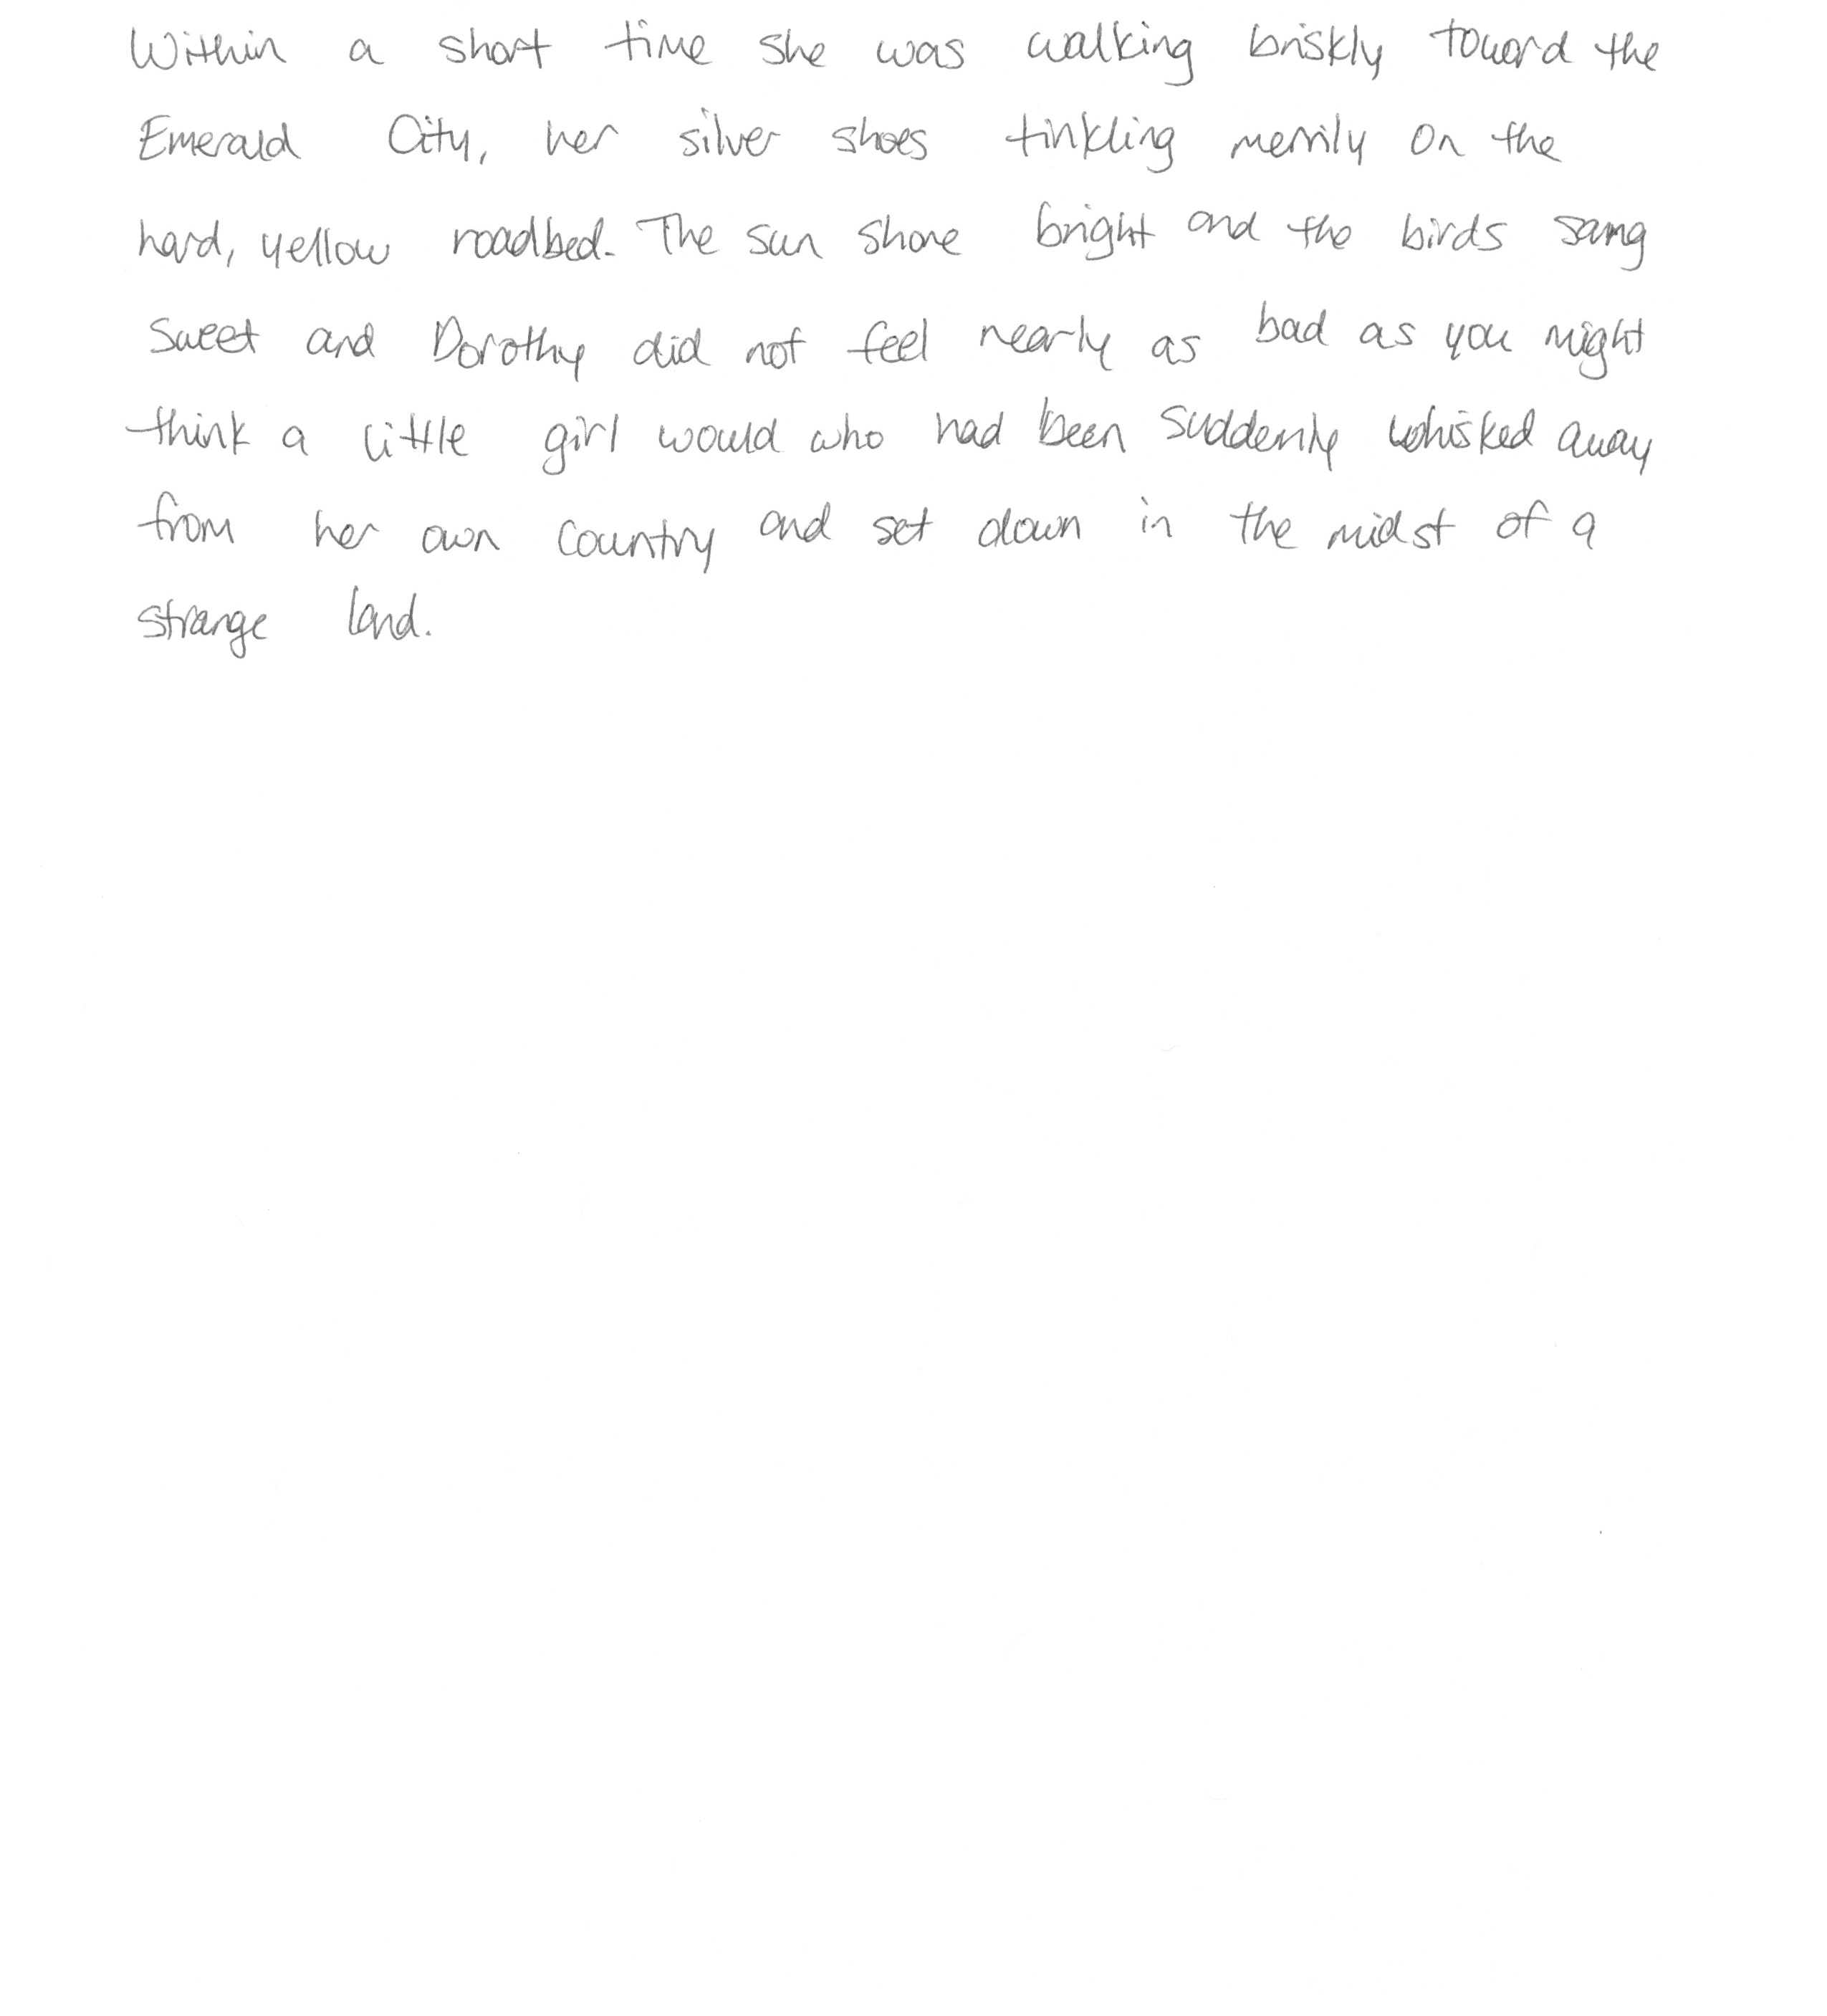 Within a short time she was walking briskly toward the
Emerald City, her silver shoes tinkling merrily on the
hard, yellow roadbed. The sun shone bright and the birds sang
sweet and Dorothy did not feel nearly as bad as you might
think a little girl would who had been suddenly whisked away
from her own country and set down in the midst of a
strange land.